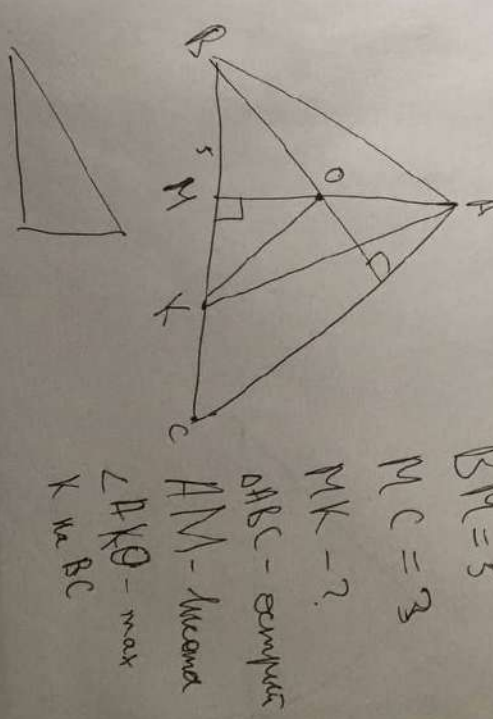 B
A
O
5
M
K
C
BM=5
MC=3
MK-?
△ABC - острый
AM - высота
∠AKO - max
K на BC